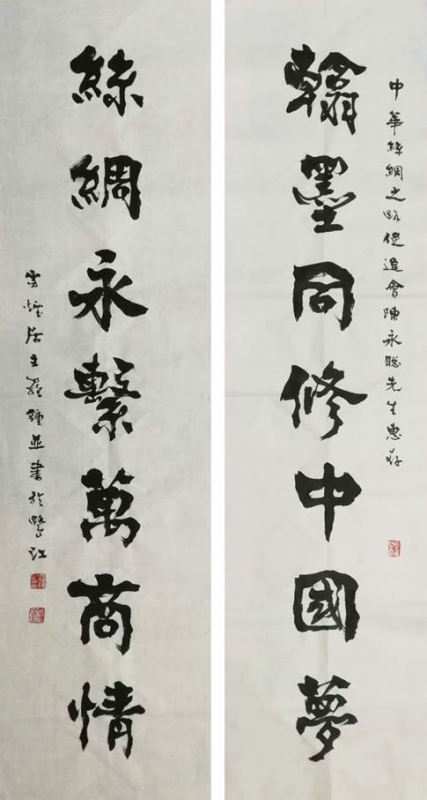 中華絲綢之路促進會陳永聰先生惠存
翰墨同修中國夢
絲綢永繫萬商情
居主羅鍾並書於江